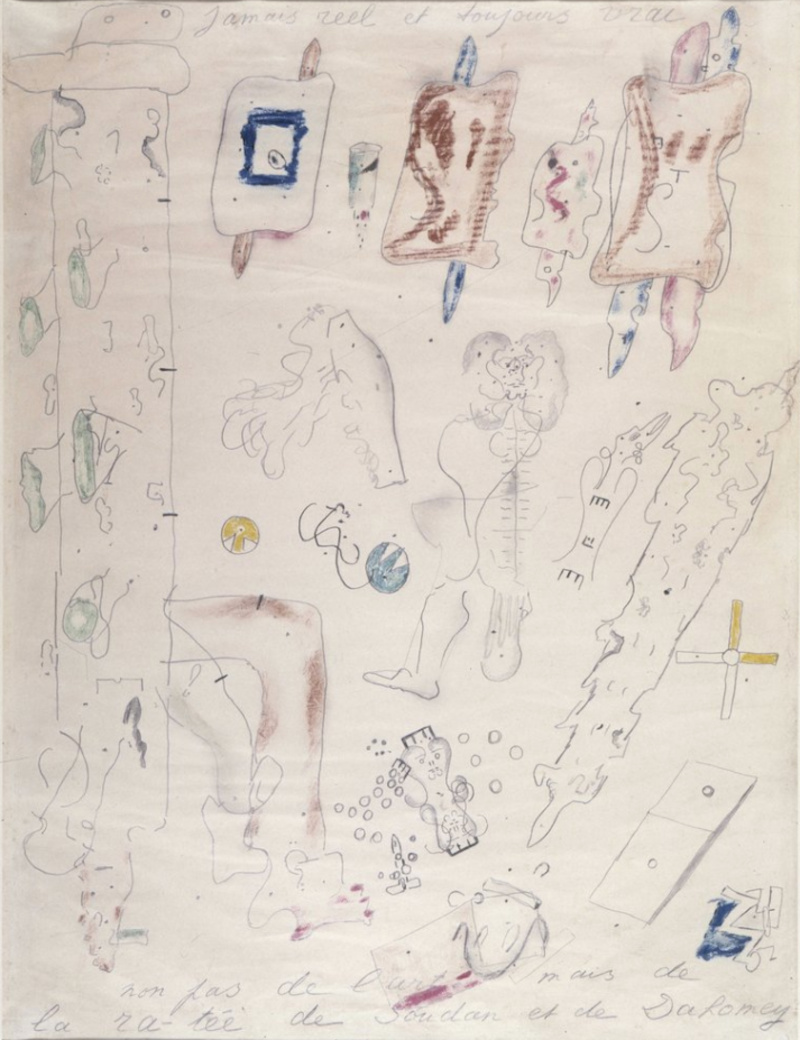 Jamais réel et toujours vrai
non pas de l'art mais de
la ra-tée de Soudan et de Dahomey.